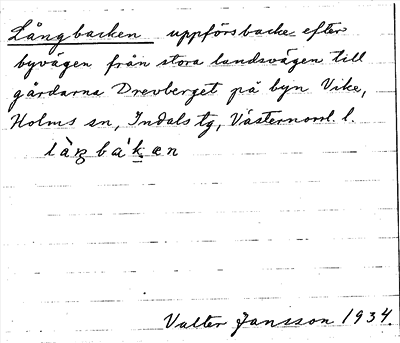 Långbacken uppförsbacke efter
byvägen från stora landsvägen till
gårdarna Drevberget på byn Vike,
Holms sn, Indals tg, Västernorrl. l.
Valter Jansson 1934.